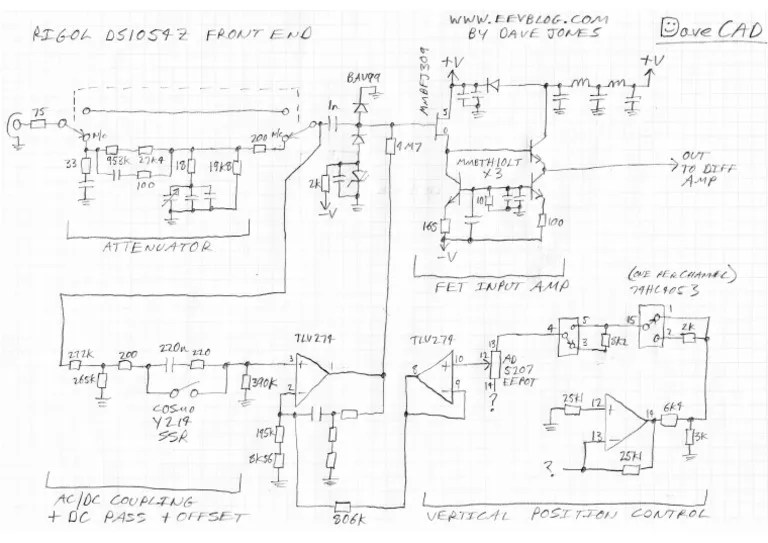 RIGOL DS1054Z FRONT END
WWW.EEVBLOG.COM
BY DAVE JONES
DaveCAD
BAV99
MMBFJ309
+V
+V
75
N/C
1n
S
200
N/C
4M7
33
952K
27K4
100
18
19K8
2K
-V
MMBTH10LT
X3
10
165
100
-V
OUT
TO DIFF
AMP
ATTENUATOR
FET INPUT AMP
(ONE PER CHANNEL)
74HC4053
277K
200
220n
220
265K
390K
COSMO
Y214
SSR
TLV274
3
+
1
2
-
195K
8K56
TLV274
8
10
+
9
-
13
12
14
AD
5207
EEPOT
?
4
5
3
8K2
15
1
2
2K
25K1
12
+
13
-
14
6K4
3K
25K1
?
806K
AC/DC COUPLING
+ DC PASS + OFFSET
VERTICAL POSITION CONTROL